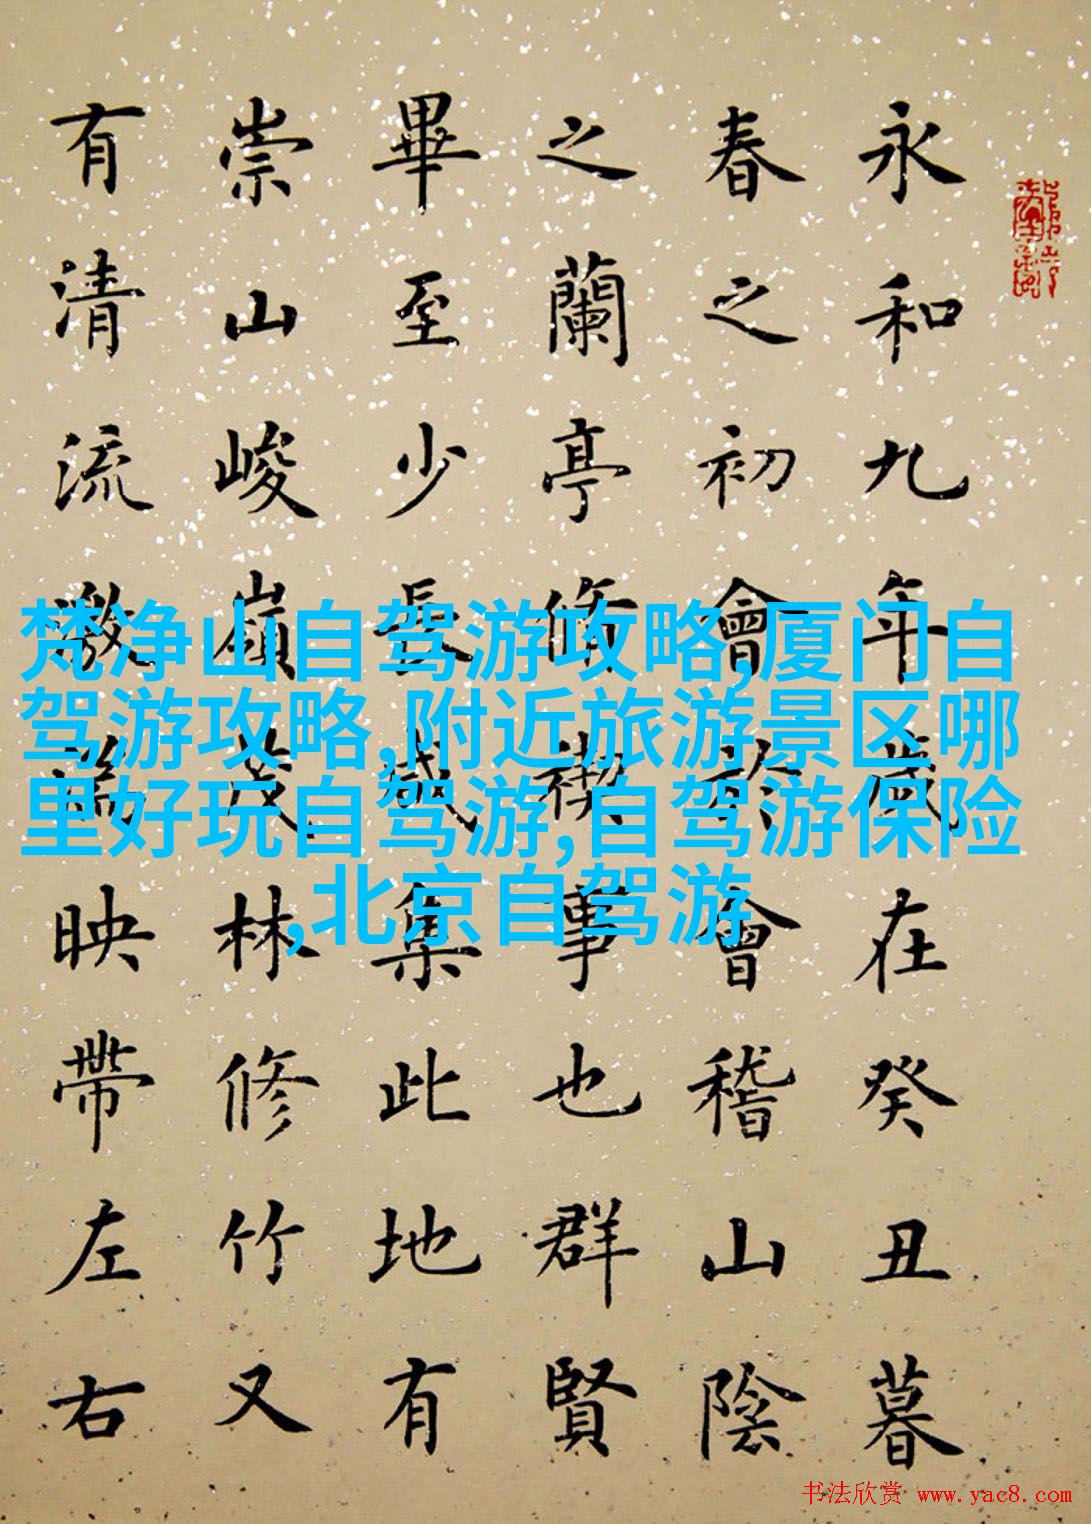 永和九年歲在癸丑暮
春之初會於會稽山陰
之蘭亭脩禊事也群賢
畢至少長咸集此地有
崇山峻嶺茂林修竹又
有清流激湍映帶左右
梵净山自驾游攻略,厦门自
驾游攻略,附近旅游景区哪
里好玩自驾游,自驾游保险
,北京自驾游
书法欣赏 www.yac8.com